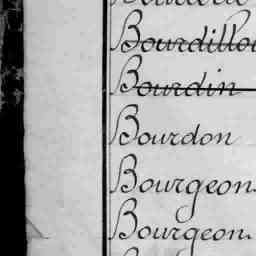 Bourdillo
Bourdin
Bourdon
Bourgeon
Bourgeon